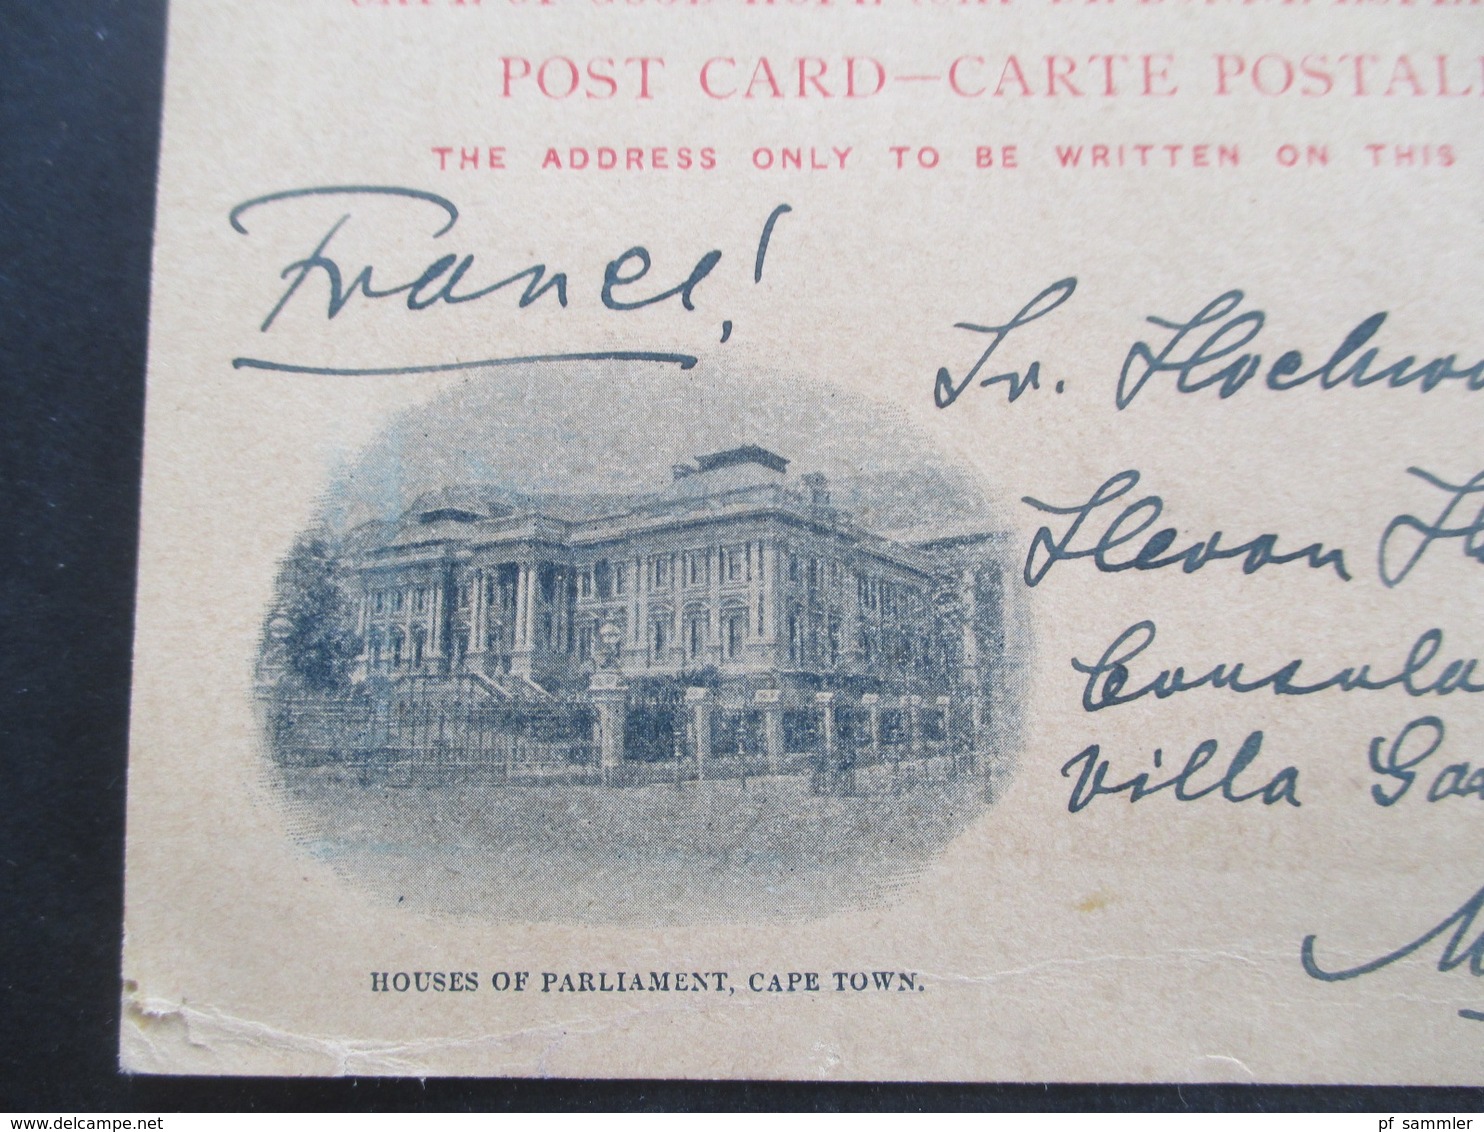 POST CARD—CARTE POSTAL
THE ADDRESS ONLY TO BE WRITTEN ON THIS
France!
Sr. Hochwo
Herrn
Consula
Villa
HOUSES OF PARLIAMENT, CAPE TOWN.
pf_sammler